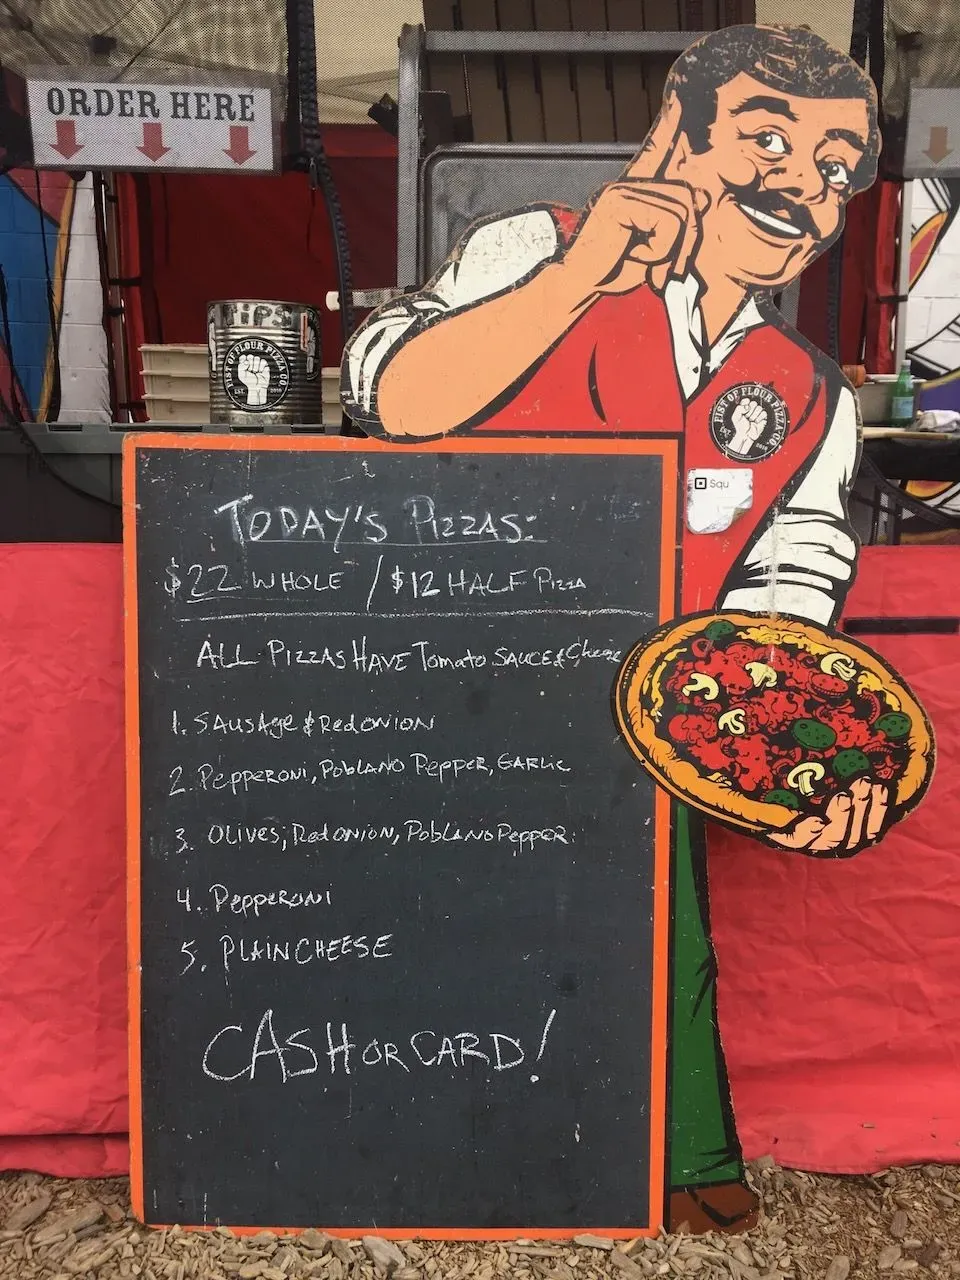 ORDER HERE
TIPS
FIST OF FLOUR PIZZA CO.
EST. 2010
FIST OF FLOUR PIZZA CO.
2010
Squ
TODAY'S PIZZAS:
$22 WHOLE / $12 HALF PIZZA
ALL PIZZAS HAVE TOMATO SAUCE & Cheese
1. SAUSAge & Red ONION
2. PepperONI, PObLANO Pepper, GARLIC
3. OLIVES, Red ONION, PObLANO Pepper
4. PepperONI
5. PLAIN CHEESE
CASH OR CARD!